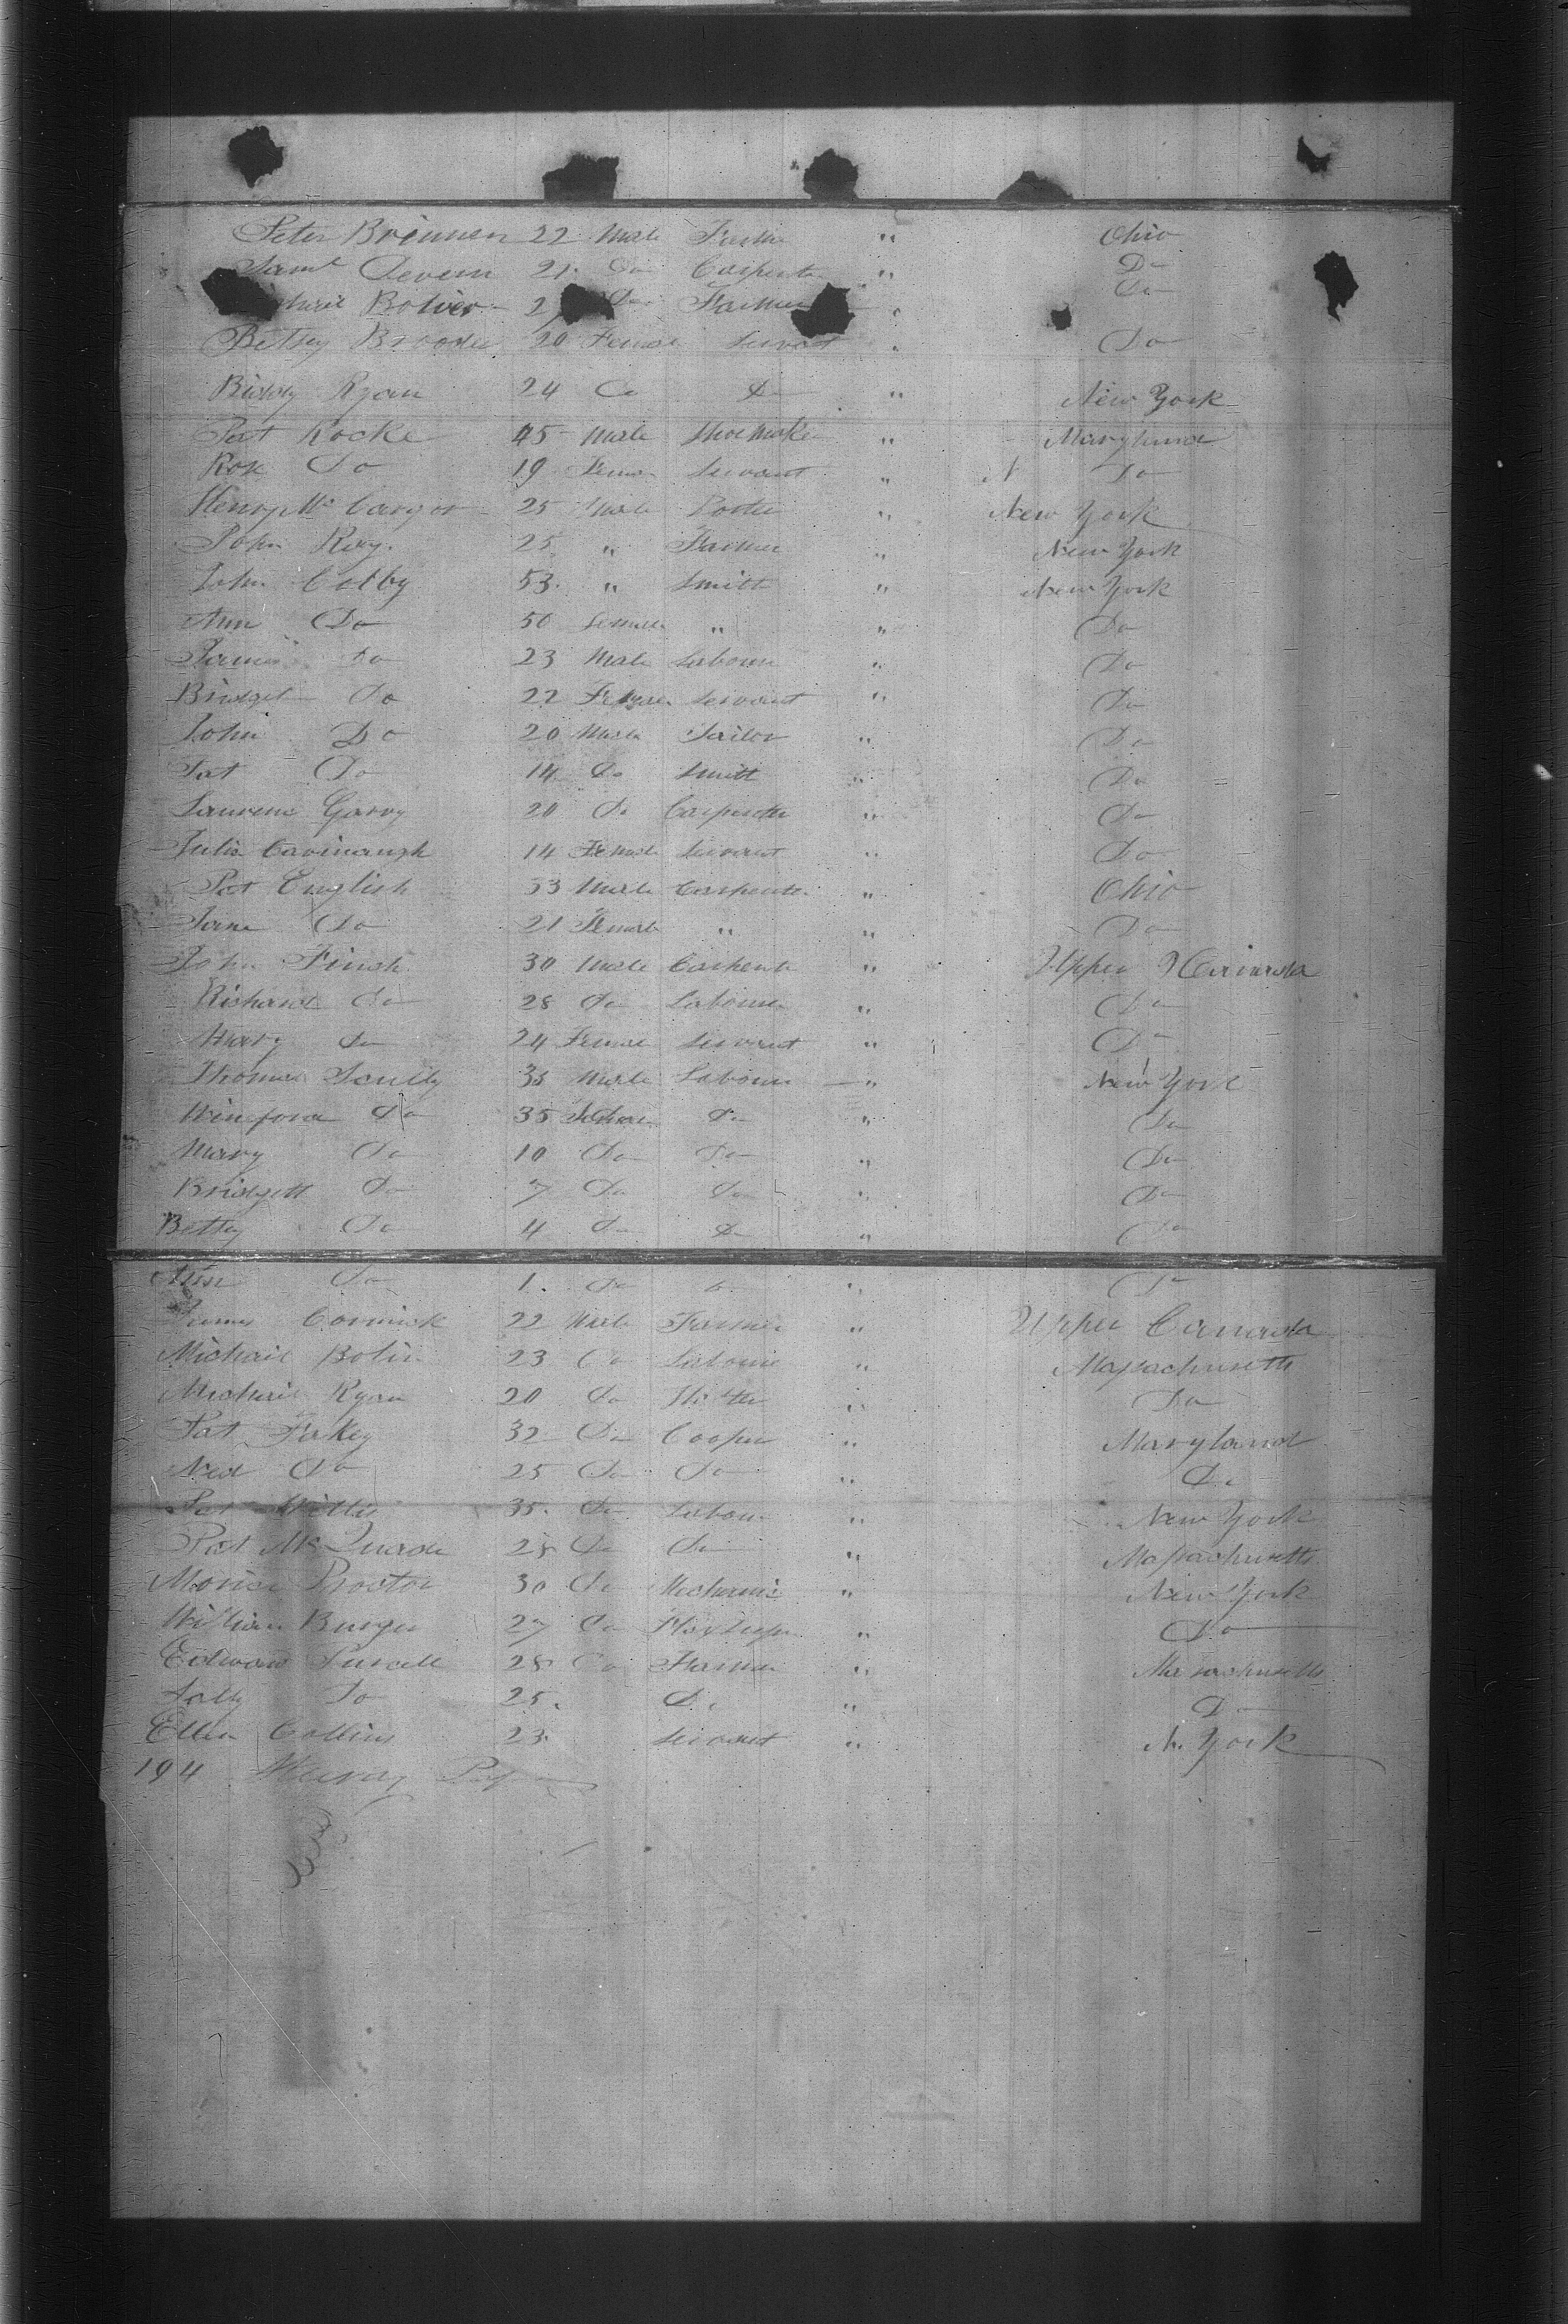 Peter Brennen 22 Male Farme " Ohio
Saml Devern 21 Do Carpenter " Do
Bolver 2 Do Farmer " Do
Betsy Broader 20 Female Servant " Do
Biddy Ryan 24 Do Do " New York
Pat Rocke 45 Male Shoemaker " Maryland
Rose Do 19 Femae Servant " Do
Henry Mc Cargor 25 Male Porter " New York
John Ray. 25 " Farmer " New York
John Colby 53. " Smith " New York
Ann Do 50 Female " " Do
James Do 23 Male Labourer " Do
Bridget Do 22 Female Servant " Do
John Do 20 Male Tailor " Do
Pat Do 14 Do Smith " Do
Laurence Garvy 20 Do Carpenter " Do
Julia Cavinaugh 14 Female Servant " Do
Pat English 33 Male Carpenter " Ohio
Jane Do 21 Female " " Do
John Finch 30 Male Carpenter " Upper Canada
Richard Do 28 Do Labourer " Do
Mary Do 24 Female Servant " Do
Thomas Scully 38 Male Labourer " New York
Winefora Do 35 Do " Do
Mary Do 10 Do Do " Do
Bridgett Do 7 Do Do " Do
Betsy Do 4 Do Do " Do
Ann Do 1. Do " Do
James Cormick 22 Male Farmer " Upper Canada
Michail Bolin 23 Do Labourer " Massachusetts
Michail Ryan 20 Do " Do
Pat Fahey 32 Do Cooper " Maryland
Ned Do 25 Do Do " Do
Pat Willis 35. Do Labour " New York
Pat Mc Quade 28 Do Do " Massachusetts
Morice Proctor 30 Do Mechanic " New York
William Burges 27 Do " Do
Edward Purcell 28 Do Farmer " Massachusetts
Sally Do 25. Do " Do
Ellen Collins 23. Servant " N. York
194 Murray